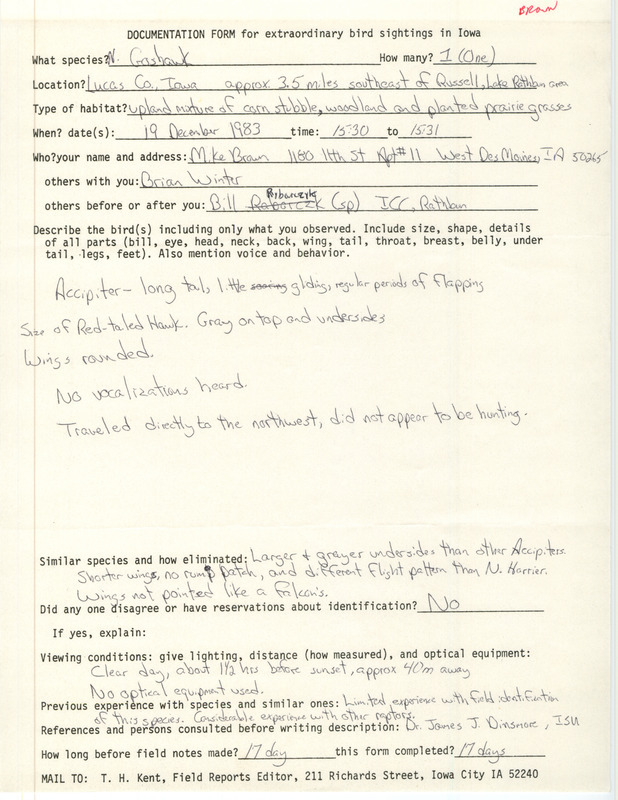 BROWN
DOCUMENTATION FORM for extraordinary bird sightings in Iowa
What species? N. Goshawk How many? 1 (One)
Location? Lucas Co., Iowa approx 3.5 miles southeast of Russell, Lake Rathbun area
Type of habitat? upland mixture of corn stubble, woodland and planted prairie grasses
When? date(s): 19 December 1983 time: 15:30 to 15:31
Who? your name and address: Mike Brown 1180 11th St Apt #11 West Des Moines, IA 50265
others with you: Brian Winter
Rybarczyk
others before or after you: Bill (sp) ICC, Rathbun
Describe the bird(s) including only what you observed. Include size, shape, details
of all parts (bill, eye, head, neck, back, wing, tail, throat, breast, belly, under
tail, legs, feet). Also mention voice and behavior.
Accipiter - long tail, little soaring gliding, regular periods of flapping
Size of Red-tailed Hawk. Gray on top and undersides
Wings rounded.
No vocalizations heard.
Traveled directly to the northwest, did not appear to be hunting.
Similar species and how eliminated: Larger + grayer undersides than other Accipiters.
Shorter wings, no rump patch, and different flight pattern than N. Harrier.
Wings not pointed like a Falcon's.
Did any one disagree or have reservations about identification? No
If yes, explain:
Viewing conditions: give lighting, distance (how measured), and optical equipment:
Clear day, about 1 1/2 hrs before sunset, approx 40m away
No optical equipment used.
Previous experience with species and similar ones: Limited experience with field identification
of this species. Considerable experience with other raptors.
References and persons consulted before writing description: Dr. James J. Dinsmore, ISU
How long before field notes made? 17 day this form completed? 17 days
MAIL TO: T. H. Kent, Field Reports Editor, 211 Richards Street, Iowa City IA 52240